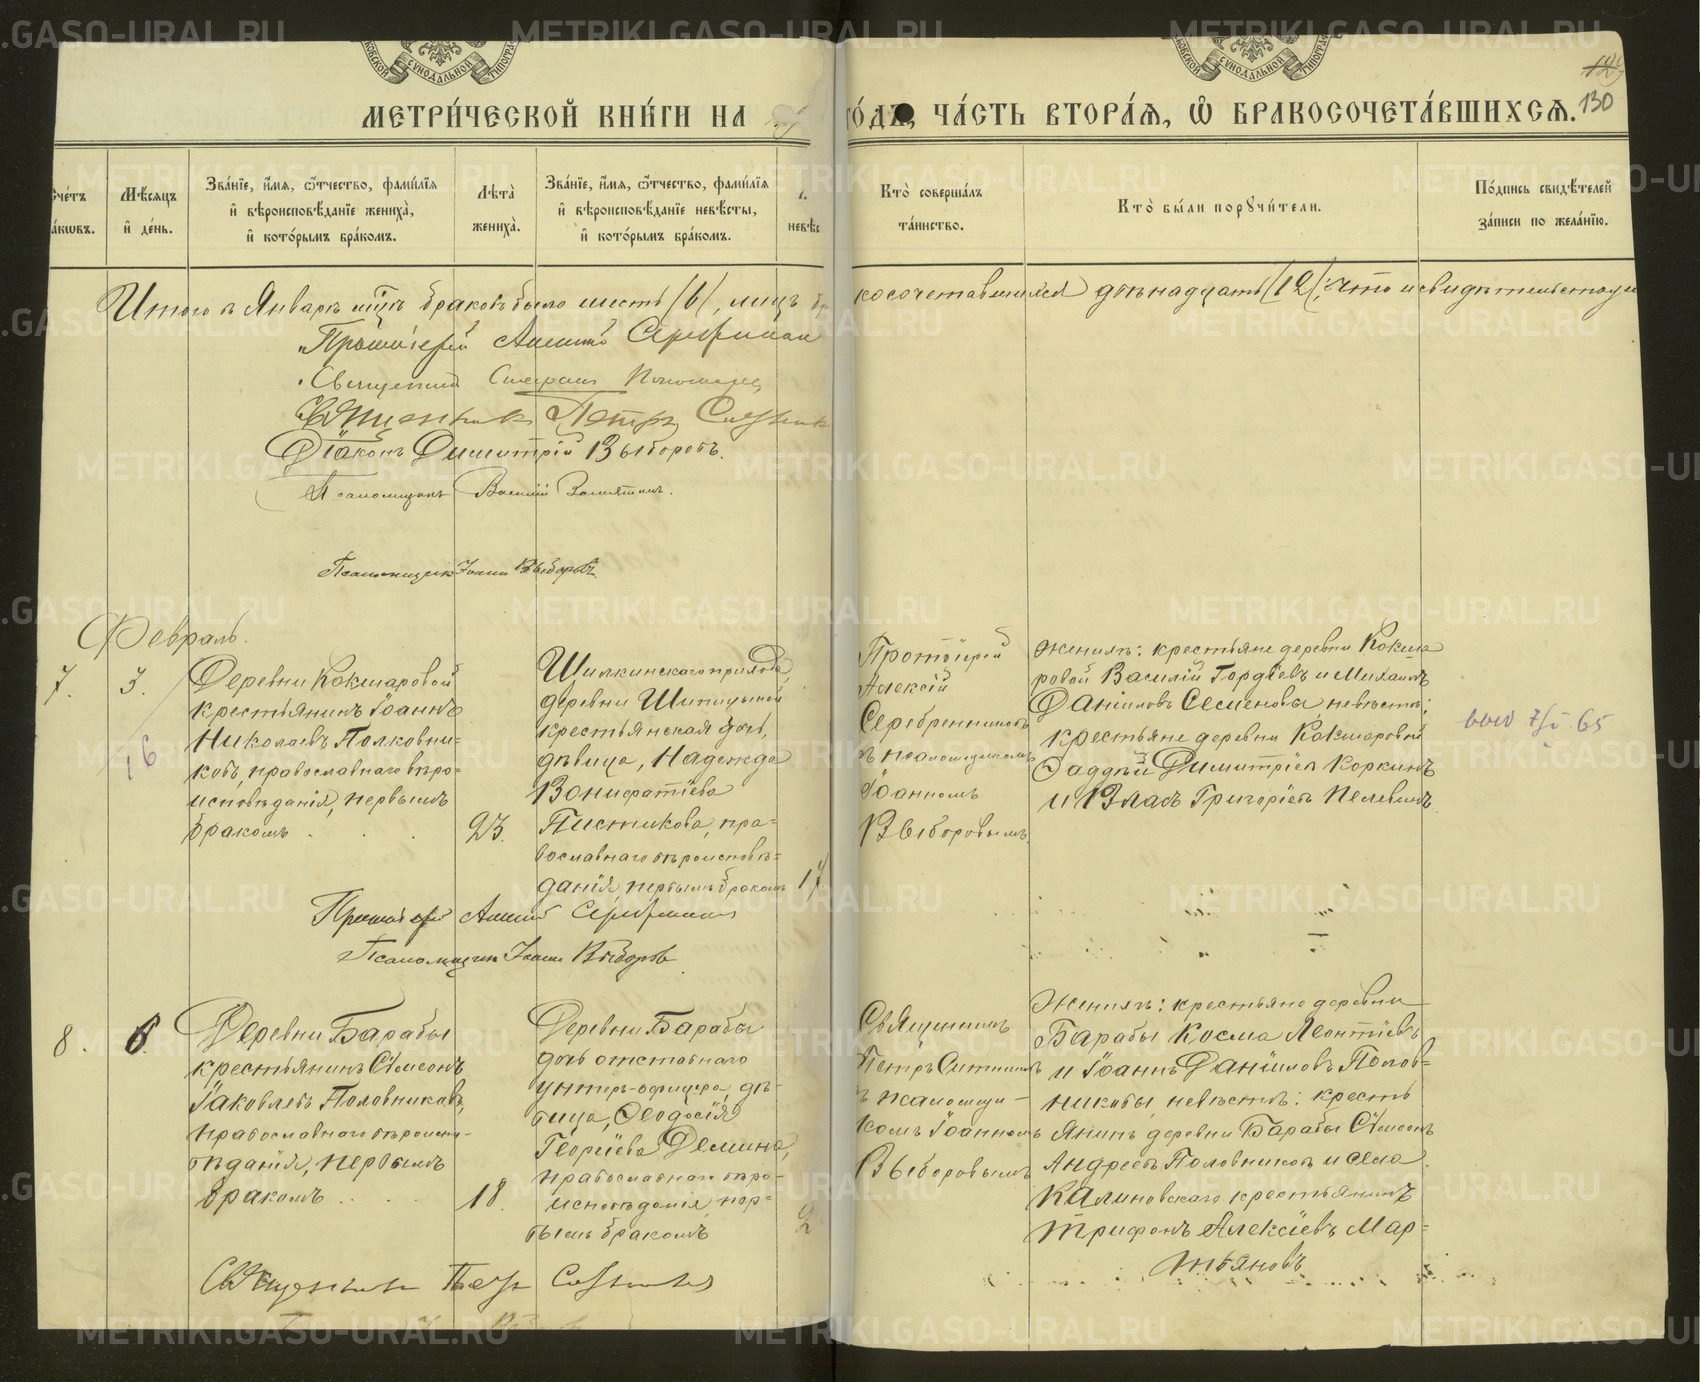 МЕТРИ́ЧЕСКОЙ КНИ́ГИ НА
ГО́ДЪ, ЧА́СТЬ ВТОРА́Я, Ѡ҆ БРАКОСОЧЕТА́ВШИХСѦ.
130
Сче́тъ бра́кωвъ.
Мѣ́сяцъ и҆ де́нь.
Зва́нїе, и҆́мя, ѻ҆́тчество, фами́лїя и҆ вѣроисповѣ́данїе жениха̀, и҆ кото́рымъ бра́комъ.
Лѣта̀ жениха̀.
Зва́нїе, и҆́мя, ѻ҆́тчество, фами́лїя и҆ вѣроисповѣ́данїе невѣ́сты, и҆ кото́рымъ бра́комъ.
Кто̀ соверша́лъ та́инство.
Кто̀ бы́ли порꙋчи́тели.
По́дпись свидѣ́телей за́писи по жела́нїю.
Итого въ Январѣ мцѣ браковъ было шесть (6), лицъ бракосочетавшихся двѣнадцать (12); что и свидѣтельствуемъ
Протоіерей Алексій Серебренниковъ
Священникъ Пономаревъ
Священникъ Петръ Ситниковъ
Діаконъ Димитрій Выборовъ.
Псаломщикъ Василій
Псаломщикъ Іоаннъ Выборовъ
Февраль.
7.
3.
16
Деревни Кокшаровой
крестьянинъ Іоаннъ
Николаевъ Полковни=
ковъ, православнаго вѣро-
исповѣданія, первымъ
бракомъ
23.
Шилкинскаго прихода,
деревни Шипицыной
крестьянская дочь,
дѣвица, Надежда
Вонифатіева
Пистикова, пра=
вославнаго вѣроисповѣ=
данія, первымъ бракомъ
17
Протоіерей
Алексій
Серебренниковъ
съ псаломщикомъ
Іоанномъ
Выборовымъ
Жениху: крестьяне деревни Кокша
ровой Василій Гордіевъ и Михаилъ
Даніиловъ Семеновы невѣстѣ;
крестьяне деревни Кокшаровой
Фаддей Димитріевъ Коркинъ
и Власъ Григоріевъ Пелевинъ
65
Протоіерей Алексій Серебренниковъ
Псаломщикъ Іоаннъ Выборовъ
8.
6.
Деревни Барабы
крестьянинъ Сімеонъ
Іаковлевъ Половниковъ,
православнаго вѣроиспо-
вѣданія, первымъ
бракомъ
18.
Деревни Барабы
дочь отставнаго
унтеръ-офицера, дѣ-
вица, Ѳеодосія
Георгіева Демина,
православнаго вѣро-
исповѣданія, пер=
вымъ бракомъ
Священникъ
Петръ Ситниковъ
съ псаломщи-
комъ Іоанномъ
Выборовымъ
Жениху: крестьяне деревни
Барабы Косма Леонтіевъ
и Іоаннъ Даніиловъ Полов=
никовы, невѣстѣ: кресть
янинъ деревни Барабы Сімеонъ
Андреевъ Половниковъ и села
Калиновскаго крестьянинъ
Трифонъ Алексіевъ Мар=
тьяновъ
Священникъ Петръ Ситниковъ